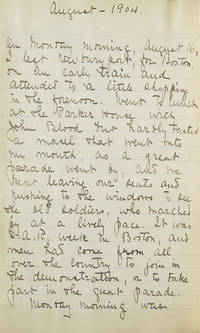 August - 1904.
On Monday morning, August 16,
I left Newburyport, for Boston
on an early train and
attended to a little shopping
in the forenoon. Went to lunch
at the Parker House with
John Blood but hardly tasted
a morsel that went into
my mouth, as a great
parade went by, and we
kept leaving our seats and
rushing to the windows to see
the old soldiers, who marched
by at a lively pace. It was
G.A.R. week in Boston, and
men had come from all
over the country to join in
the demonstration, or to take
part in the great parade.
Monday morning was